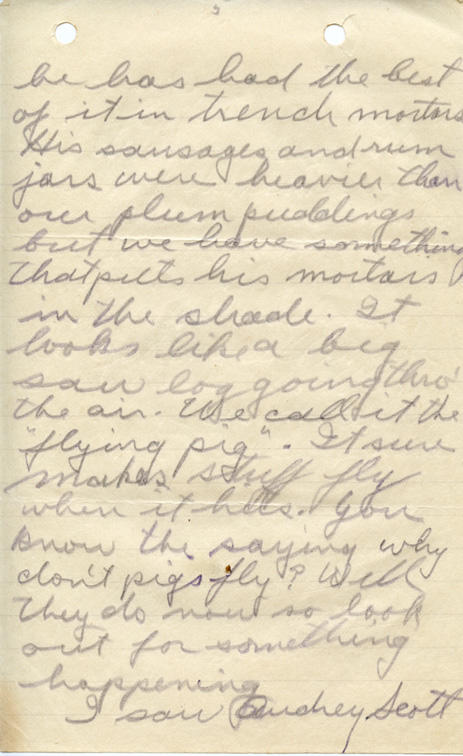 he has had the best
of it in trench mortars
His sausages and rum
jars were heavier than
our plum puddings
but we have something
that puts his mortars
in the shade. It
looks like a big
saw log going thro'
the air. We call it the
"flying pig". It sure
makes stuff fly
when it hits. You
know the saying why
don't pigs fly? Well
they do now so look
out for something
happening
I saw Audrey Scott